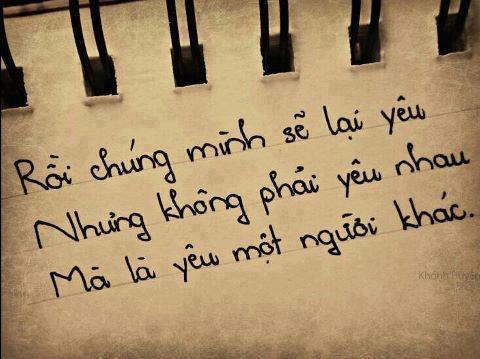 Rồi chúng mình sẽ lại yêu
Nhưng không phải yêu nhau
Mà là yêu một người khác.
Khánh Huyền